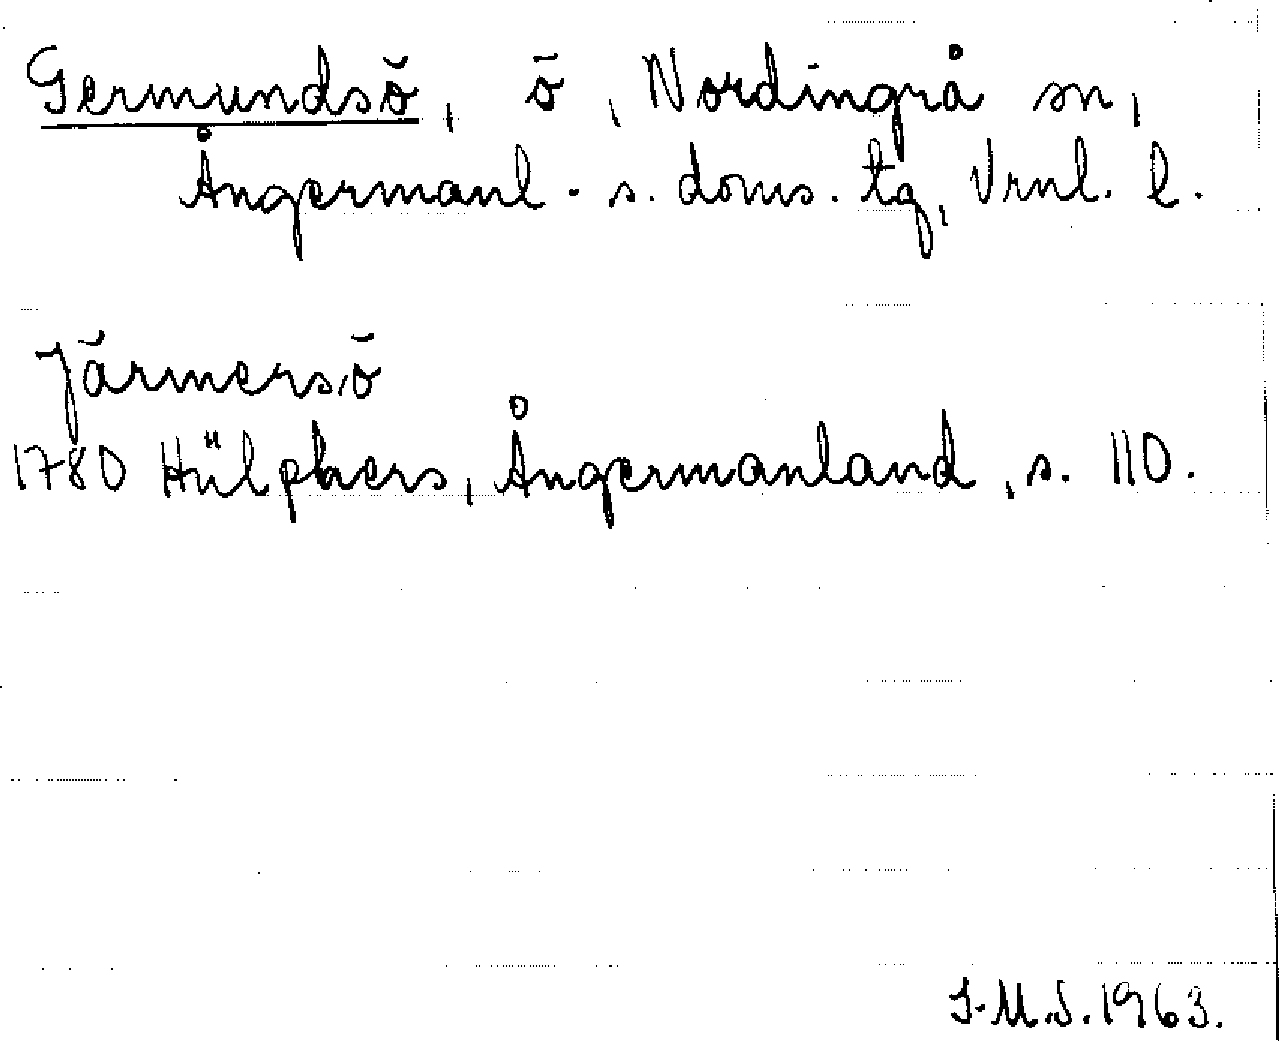 Germundsö, ö, Nordingrå sn,
Ångermanl. s. doms. tg, Vrnl. l.
Järmersö
1780 Hülphers, Ångermanland, s. 110.
I.M.S. 1963.